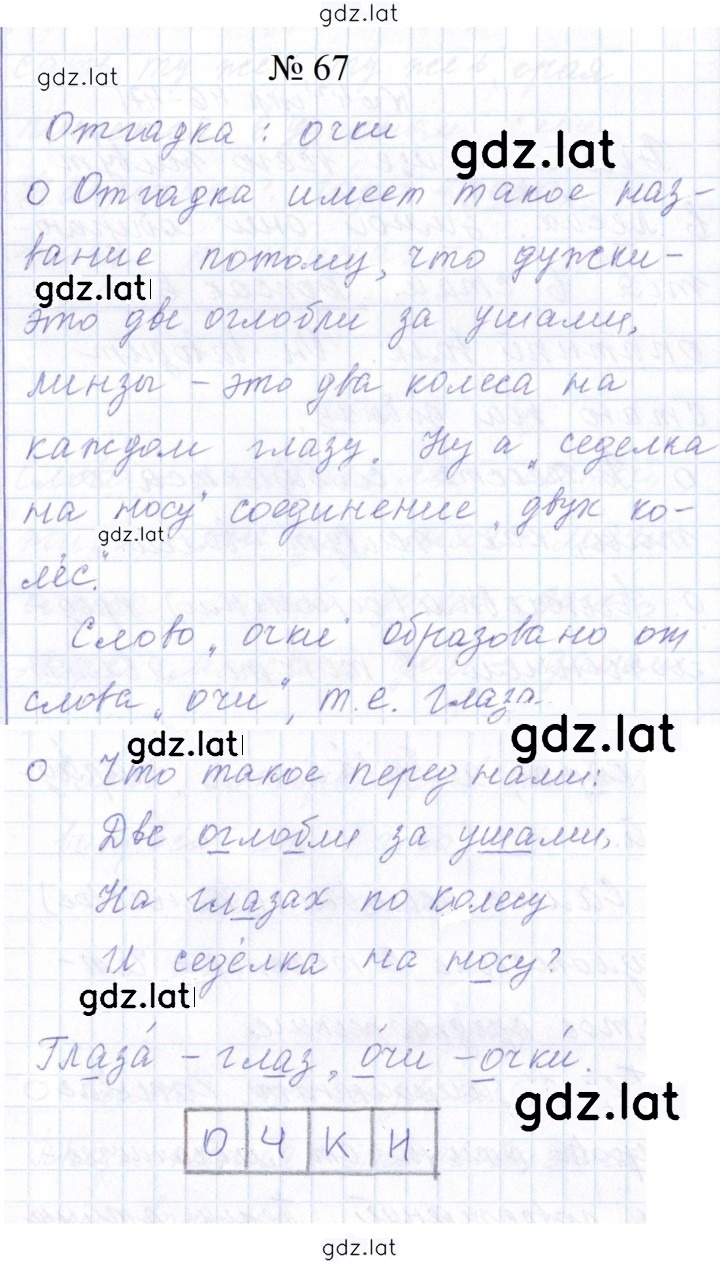 gdz.lat
gdz.lat
№ 67
Отгадка: очки
gdz.lat
о Отгадка имеет такое наз-
вание потому, что дужки-
gdz.lat
это две оглобли за ушами,
линзы - это два колеса на
каждом глазу. Ну а "седелка
на носу" соединение "двух ко-
gdz.lat
лёс."
Слово "очки" образовано от
слова "очи", т.е. глаза.
gdz.lat
gdz.lat
о Что такое перед нами:
Две оглобли за ушами,
На глазах по колесу
И седёлка на носу?
gdz.lat
Глаза́ - глаз, о́чи - очки́.
gdz.lat
О Ч К И
gdz.lat